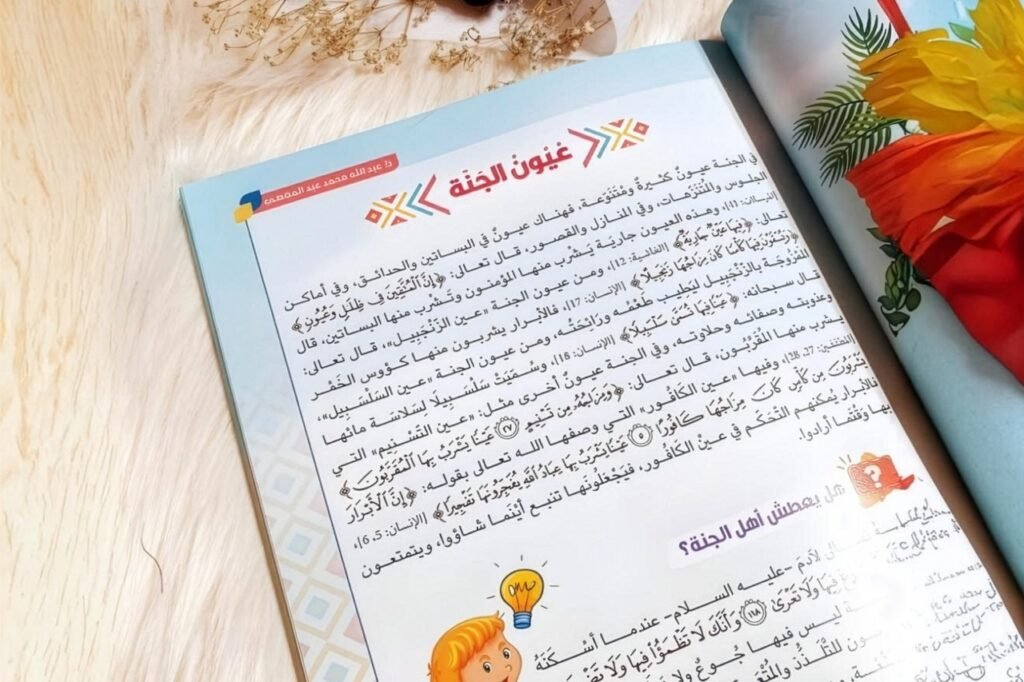 د/ عبد الله محمد عبد المعطي
عُيُونُ الجَنَّة
في الجنة عيونٌ كثيرةٌ ومُتَنَوِّعَة، فهناك عيونٌ في البساتين والحدائق، وفي أماكن
الجلوس والمُتَنَزَّهات، وفي المنازل والقصور، قال تعالى: ﴿إِنَّ ٱلۡمُتَّقِينَ فِي ظِلَٰلٖ وَعُيُونٖ﴾
[المرسلات: 41]، وهذه العيون جاريَة يَشْرب منها المؤمنون وتَشْرب منها البساتين، قال
تعالى: ﴿فِيهَا عَيۡنٞ جَارِيَةٞ﴾ [الغاشية: 12]، ومن عيون الجنة «عين الزَّنْجَبِيل»، قال تعالى:
﴿وَيُسۡقَوۡنَ فِيهَا كَأۡسٗا كَانَ مِزَاجُهَا زَنجَبِيلًا﴾ [الإنسان: 17]، فالأبرار يشربون منها كؤوس الخَمْر
المَمْزُوجَة بالزَّنْجَبِيل ليَطِيب طَعْمُه ورَائِحَتُه، ومن عيون الجنة «عين السَّلْسَبِيل»،
قال سبحانه: ﴿عَيۡنٗا فِيهَا تُسَمَّىٰ سَلۡسَبِيلٗا﴾ [الإنسان: 18]، وسُمِّيَتْ سَلْسَبِيلًا لِسَلاسَة مائها
وعذوبته وصفائه وحلاوته، وفي الجنة عيونٌ أخرى مثل: «عين التَّسْنِيم» التي
يشرب منها المُقَرَّبُون، قال تعالى: ﴿وَمِزَاجُهُۥ مِن تَسۡنِيمٍ ٢٧ عَيۡنٗا يَشۡرَبُ بِهَا ٱلۡمُقَرَّبُونَ﴾
[المطففين: 27، 28]، وفيها «عين الكَافُور» التي وصفها الله تعالى بقوله: ﴿إِنَّ ٱلۡأَبۡرَارَ
يَشۡرَبُونَ مِن كَأۡسٖ كَانَ مِزَاجُهَا كَافُورًا ٥ عَيۡنٗا يَشۡرَبُ بِهَا عِبَادُ ٱللَّهِ يُفَجِّرُونَهَا تَفۡجِيرٗا﴾ [الإنسان: 5، 6]،
فالأبرار يُمكنهم التَّحَكُّم في عينْ الكَافُور، فيَجْعَلُونَها تنبع أَيْنَما شاؤُوا، ويتمتعون
بها وَقْتَما أرادوا.
هل يعطش أهل الجنة؟
لآدم -عليه السلام- عندما أسْكَنَهُ
فِيهَا وَلَا تَعۡرَىٰ ١١٨ وَأَنَّكَ لَا تَظۡمَؤُاْ فِيهَا وَلَا
ليس فيها جُوعٌ ولا
للتَّلَذُّذ والمُتْعَة